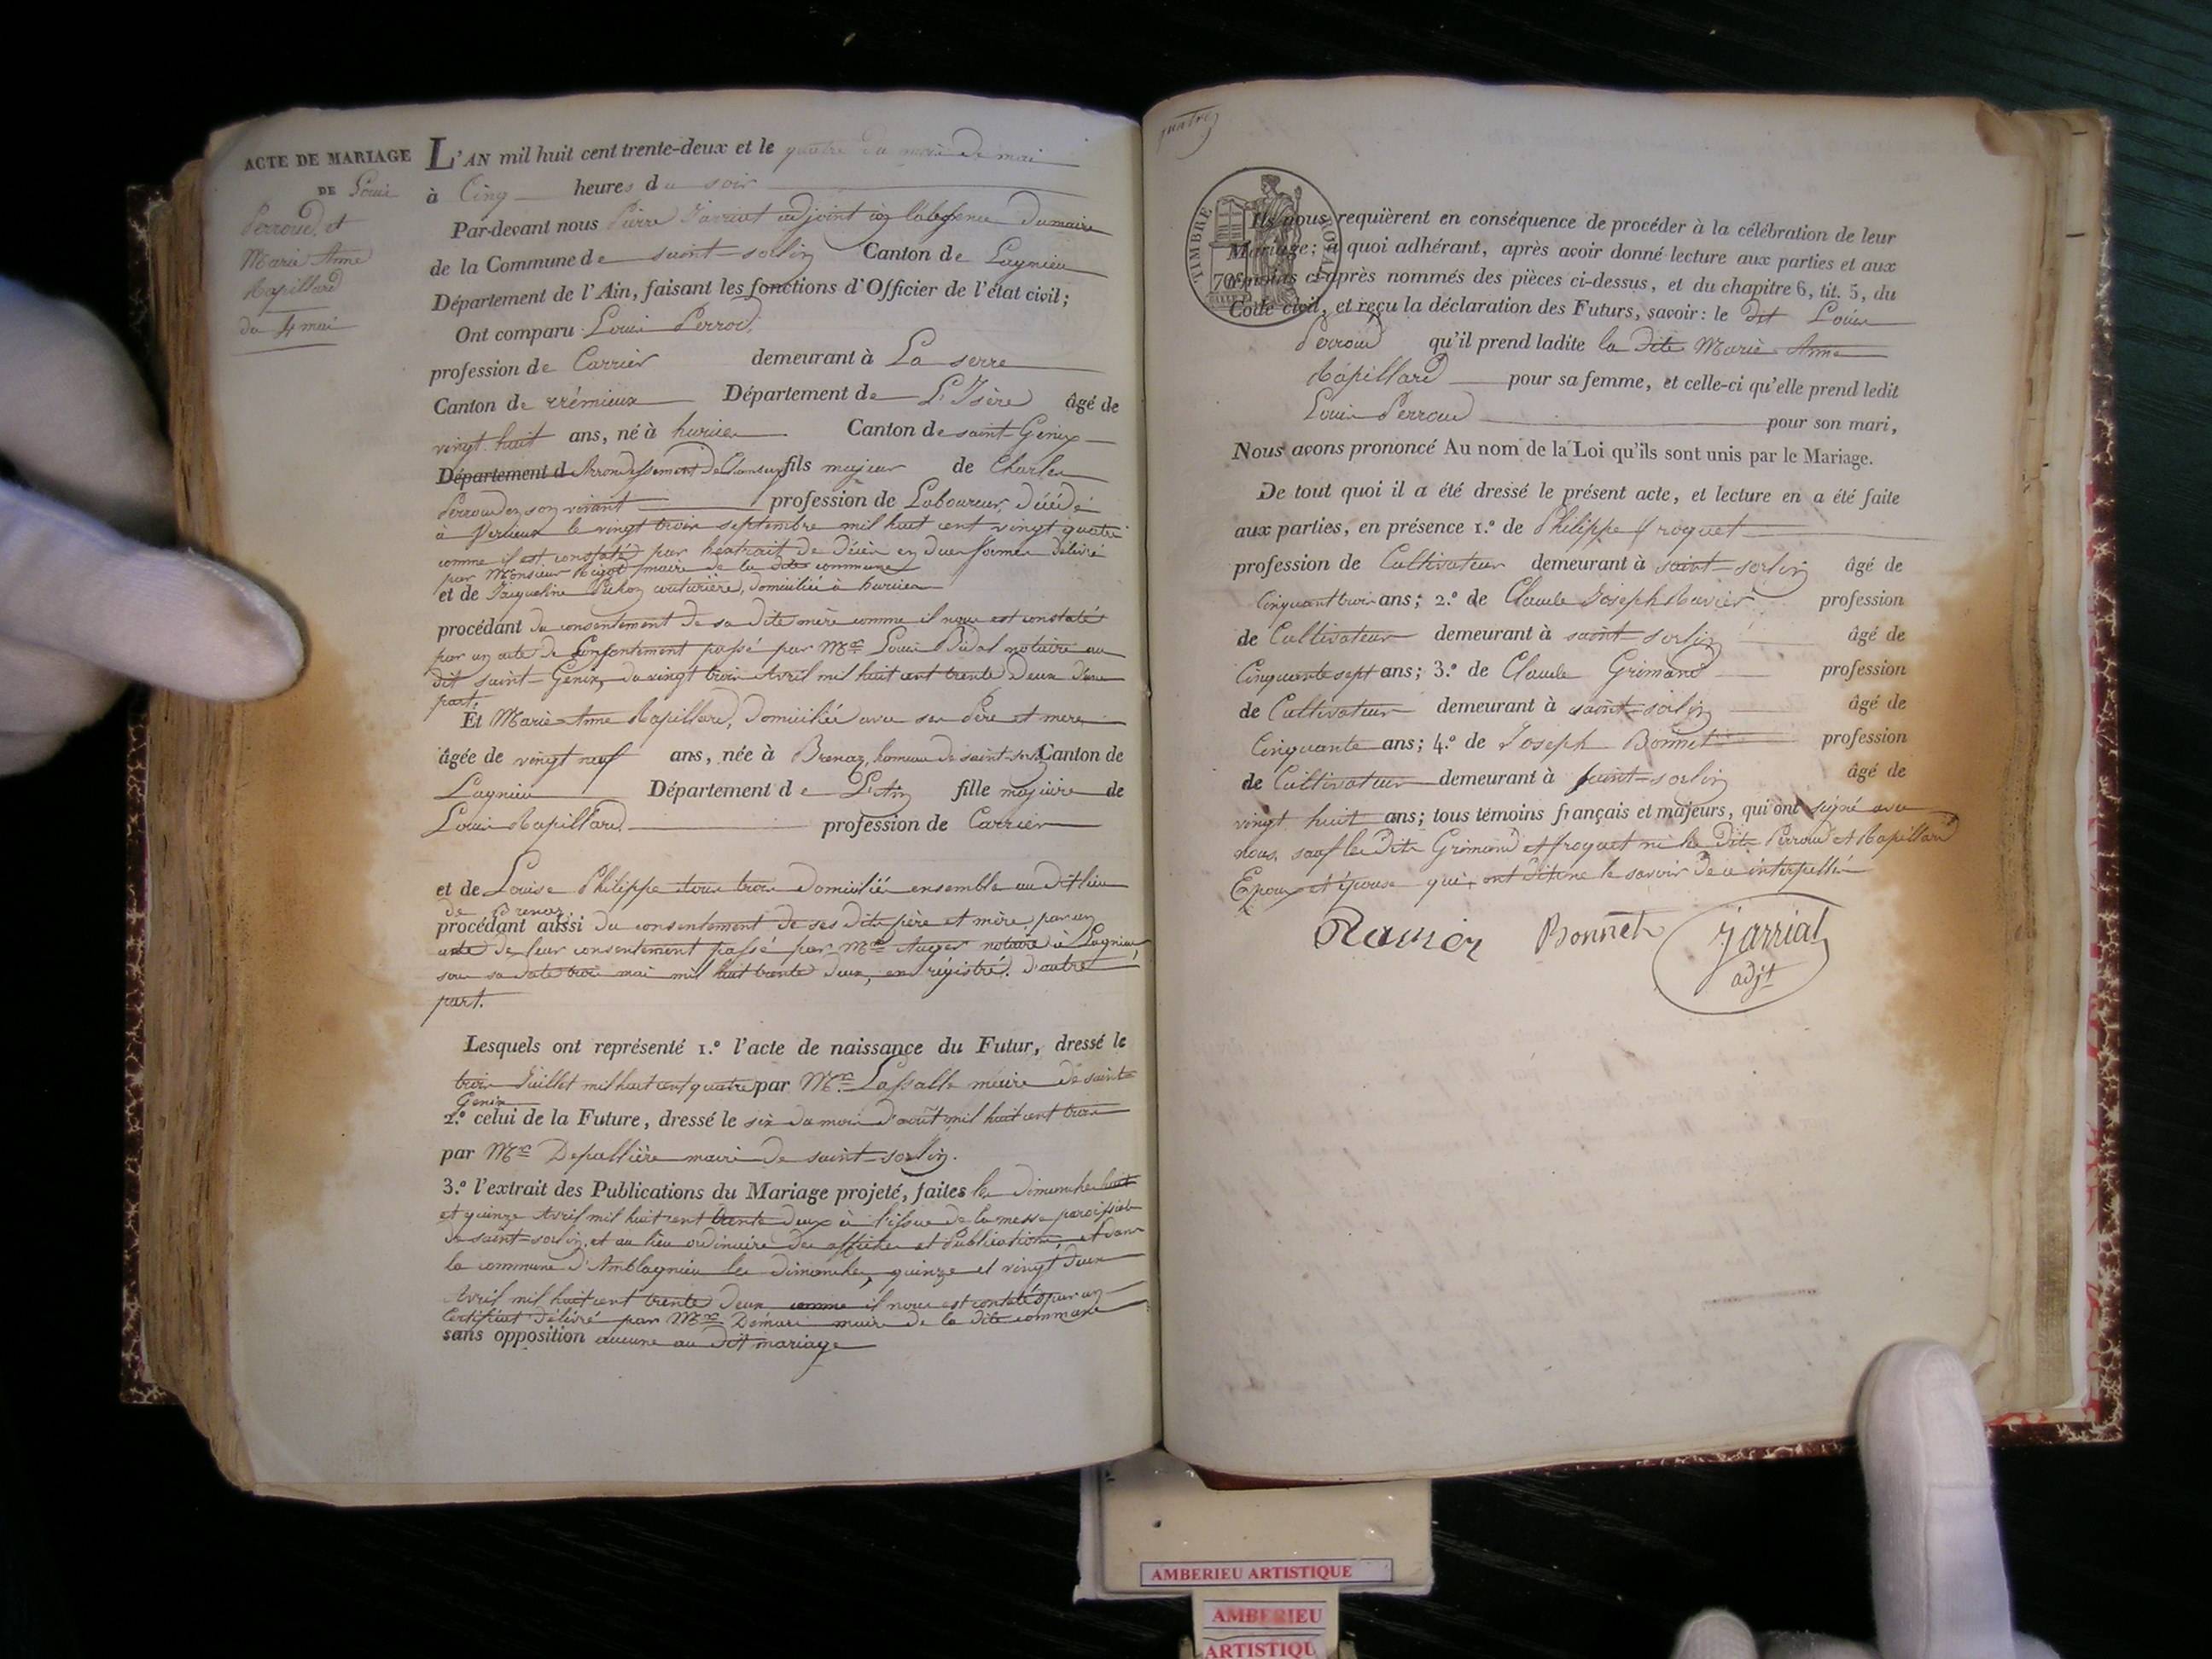 ACTE DE MARIAGE
DE Louis
Perroud et
Marie Anne
Rapillard
du 4 mai
L'AN mil huit cent trente-deux et le quatre du mois de mai
à Cinq heures du soir
Par-devant nous Pierre Jarriat adjoint en l'absence du maire
de la Commune de saint-sorlin Canton de Lagnieu
Département de l'Ain, faisant les fonctions d'Officier de l'état civil;
Ont comparu Louis Perrod
profession de Carrier demeurant à La serre
Canton de crémieux Département de L'Isère âgé de
vingt huit ans, né à hurien Canton de saint-Genix
Département d Arrondissement de fils majeur de Charles
Perroud en son vivant profession de Laboureur, décédé
à Verlieux le vingt trois septembre mil huit cent vingt quatre
comme il est constaté par l'extrait de décès en due forme délivré
par Monsieur Rigot maire de la dite commune
et de Jacqueline Pichon couturière, domiciliée à hurien
procédant du consentement de sa dite mère comme il nous est constaté
par un acte de consentement passé par Mre Louis Bidal notaire au
dit saint-Genix, du vingt trois Avril mil huit cent trente Deux d'une
part.
Et Marie-Anne Rapillard, domiciliée avec ses Père et mère
âgée de vingt neuf ans, née à Brenaz, hameau de saint-sorlin Canton de
Lagnieu Département de L'Ain fille majeure de
Louis Rapillard profession de Carrier
et de Louise Philippe tous trois domiciliés ensemble au dit lieu
de Brenaz
procédant aussi du consentement de ses dits père et mère, par un
acte de leur consentement passé par Mre Auger notaire à Lagnieu,
sous sa date trois mai mil huit trente deux, enrégistré. d'autre
part.
Lesquels ont représenté 1.º l'acte de naissance du Futur, dressé le
trois Juillet mil huit cent quatre par Mr. Lassalle maire de saint-
Genix
2.º celui de la Future, dressé le six du mois d'août mil huit cent trois
par Mr Depallière maire de saint-sorlin.
3.º l'extrait des Publications du Mariage projeté, faites les dimanches huit
et quinze Avril mil huit cent trente deux à l'issue de la messe paroissiale
de saint-sorlin, et au lieu ordinaire des affiches et Publications, et dans
la commune d'Amblagnieu les dimanches, quinze et vingt deux
Avril mil huit cent trente deux comme il nous est constaté par un
Certificat délivré par Mr. Demare maire de la dite commune
sans opposition aucune au dit mariage
quatre
TIMBRE ROYAL
Ils nous requièrent en conséquence de procéder à la célébration de leur
Mariage; à quoi adhérant, après avoir donné lecture aux parties et aux
témoins ci-après nommés des pièces ci-dessus, et du chapitre 6, tit. 5, du
Code civil, et reçu la déclaration des Futurs, savoir: le dit Louis
Perroud qu'il prend ladite la dite Marie Anne
Rapillard pour sa femme, et celle-ci qu'elle prend ledit
Louis Perroud pour son mari,
Nous avons prononcé Au nom de la Loi qu'ils sont unis par le Mariage.
De tout quoi il a été dressé le présent acte, et lecture en a été faite
aux parties, en présence 1.º de Philippe froquet
profession de Cultivateur demeurant à saint-sorlin âgé de
Cinquante trois ans; 2.º de Claude Joseph Ravier profession
de Cultivateur demeurant à saint-sorlin âgé de
Cinquante sept ans; 3.º de Claude Grimand profession
de Cultivateur demeurant à saint-sorlin âgé de
Cinquante ans; 4.º de Joseph Bonnet profession
de Cultivateur demeurant à saint-sorlin âgé de
vingt huit ans; tous témoins français et majeurs, qui ont signé avec
nous, sauf les dits Grimand et froquet ni les dits Perroud et Rapillard
Epoux et épouse qui ont dit ne le savoir de ce interpellés
Ravier Bonnet Jarriat
adjt
AMBERIEU ARTISTIQUE
AMBERIEU
ARTISTIQU